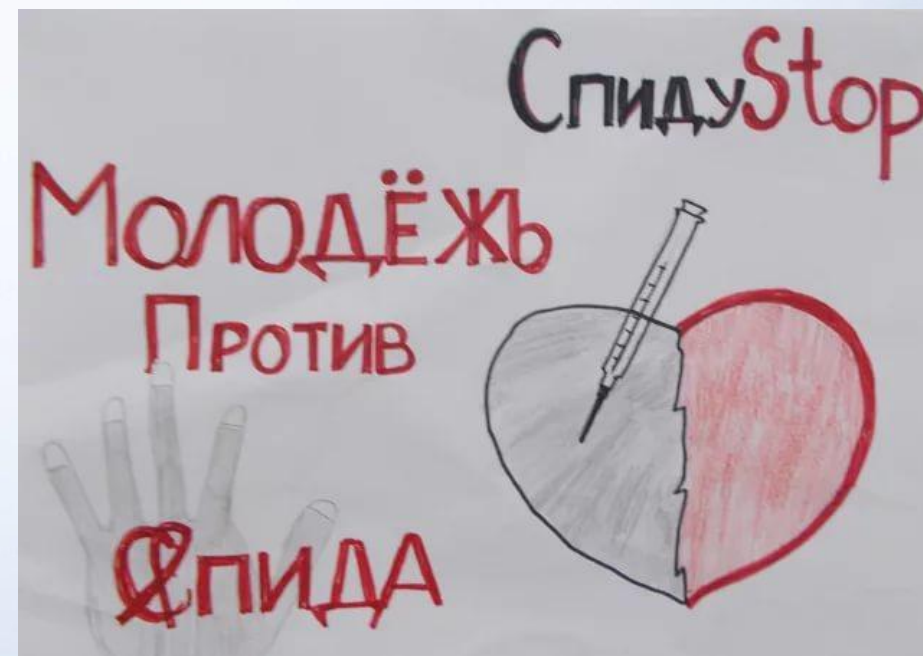 СпидуStop
Молодёжь
Против
Спида